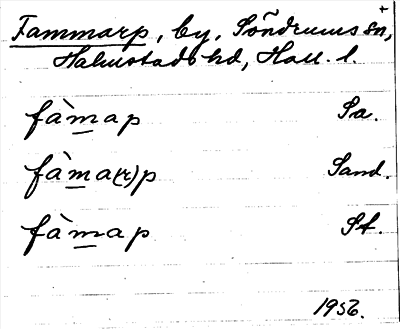 Tammarp, by, Söndrums sn,
Halmstads hd, Hall. l.
fàmap Sa.
fàma(r)p Sand.
fàmap St.
1956.